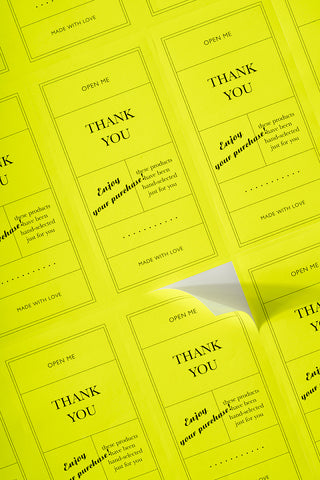 MADE WITH LOVE
OPEN ME
THANK
YOU
Enjoy
your purchase
these products
have been
hand-selected
just for you
MADE WITH LOVE
OPEN ME
THANK
YOU
Enjoy
your purchase
these products
have been
hand-selected
just for you
MADE WITH LOVE
YOU
these products
have been
hand-selected
just for you
MADE WITH LOVE
OPEN ME
THANK
YOU
Enjoy
your purchase
these products
have been
hand-selected
just for you
OPEN ME
THANK
YOU
Enjoy
your purchase
these products
have been
hand-selected
just for you
OPEN ME